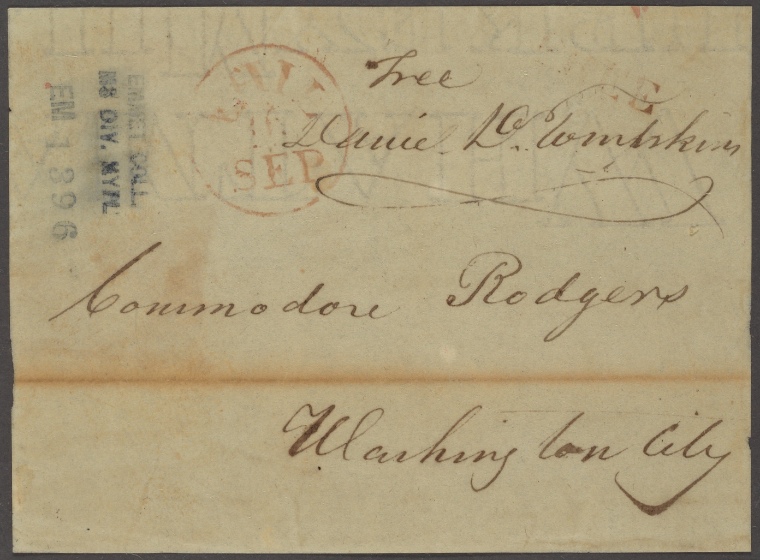 Free
Daniel D. Tompkins
SEP
Commodore Rodgers
Washington City
EMMET COLL.
MS DIV. NYPL
EM 1896